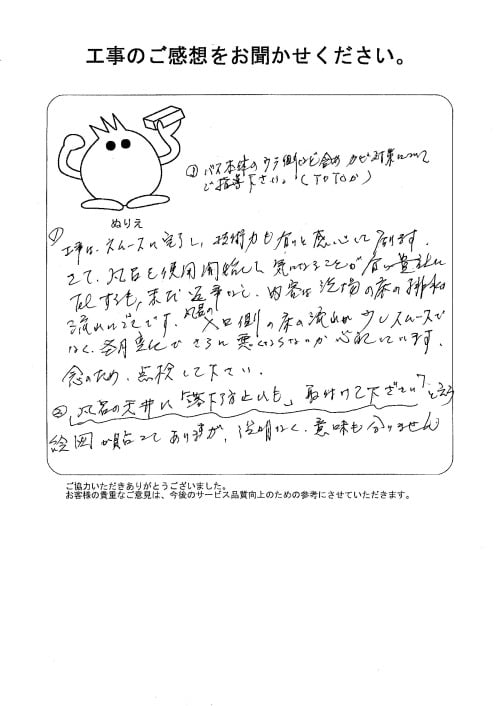 工事のご感想をお聞かせください。
③バス本体のウラ側など含め カビ対策について
ご指導下さい。(TOTOか)
ぬりえ
① 工事は、スムースに完了し、技術力も有りと感心して居ります。
さて、風呂を使用開始し、気になることが有り貴社に
Telするも、未だ返事なし。内容は洗場の床の排水の
流れいどです。風呂の入口側の床の流れが少しスムースで
なく、
さらに悪くならないか心配しています。
念のため、点検して下さい。
② 風呂の天井に「落下防止ヒモ」取付けて下ださい」と言う
絵図が貼ってありますが、説明なく、意味も分りません
ご協力いただきありがとうございました。
お客様の貴重なご意見は、今後のサービス品質向上のための参考にさせていただきます。